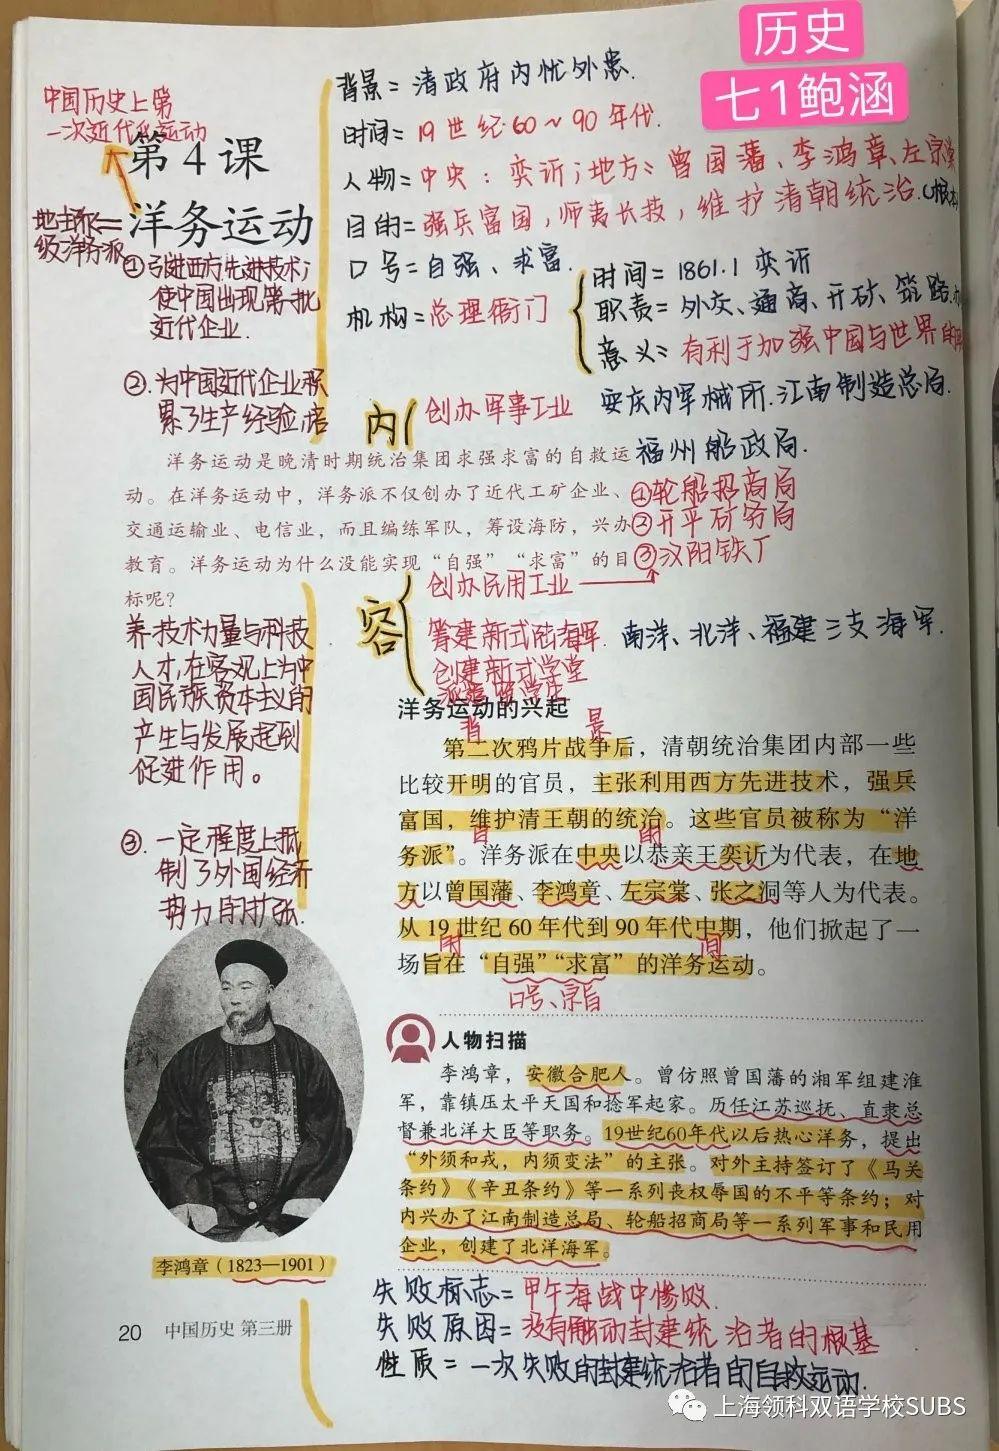 历史
七1鲍涵
中国历史上第
一次近代化运动
第 4 课
洋务运动
地主阶
级洋务派
背景=清政府内忧外患.
时间=19世纪60~90年代.
人物=中央:奕䜣;地方:曾国藩、李鸿章、左宗棠
目的=强兵富国,师夷长技,维护清朝统治.(根本
口号=自强、求富.
机构=总理衙门
时间=1861.1 奕䜣
职责=外交、通商、开矿、筑路.
意义=有利于加强中国与世界的
①引进西方先进技术;
使中国出现第一批
近代企业.
②.为中国近代企业积
累了生产经验,培
内
创办军事工业 安庆内军械所.江南制造总局.
福州船政局.
洋务运动是晚清时期统治集团求强求富的自救运
动。在洋务运动中,洋务派不仅创办了近代工矿企业、
交通运输业、电信业,而且编练军队,筹设海防,兴办
教育。洋务运动为什么没能实现“自强”“求富”的目
标呢?
①轮船招商局
②开平矿务局
③汉阳铁厂
创办民用工业
容
筹建新式陆海军. 南洋、北洋、福建三支海军.
创建新式学堂
派遣留学生
养技术力量与科技
人才,在客观上为中
国民族资本主义的
产生与发展起到
促进作用。
③.一定程度上抵
制了外国经济
势力的扩张.
洋务运动的兴起
背 景
第二次鸦片战争后,清朝统治集团内部一些
比较开明的官员,主张利用西方先进技术,强兵
富国,维护清王朝的统治。这些官员被称为“洋
目 的
务派”。洋务派在中央以恭亲王奕䜣为代表,在地
方以曾国藩、李鸿章、左宗棠、张之洞等人为代表。
从19世纪60年代到90年代中期,他们掀起了一
时 间
场旨在“自强”“求富”的洋务运动。
口号、宗旨
人物扫描
李鸿章,安徽合肥人。曾仿照曾国藩的湘军组建淮
军,靠镇压太平天国和捻军起家。历任江苏巡抚、直隶总
督兼北洋大臣等职务。19世纪60年代以后热心洋务,提出
“外须和戎,内须变法”的主张。对外主持签订了《马关
条约》《辛丑条约》等一系列丧权辱国的不平等条约;对
内兴办了江南制造总局、轮船招商局等一系列军事和民用
企业,创建了北洋海军。
李鸿章(1823—1901)
失败标志=甲午海战中惨败.
失败原因=没有触动封建统治者的根基
性质=一次失败的封建统治者的自救运动.
20 中国历史 第三册
上海领科双语学校SUBS